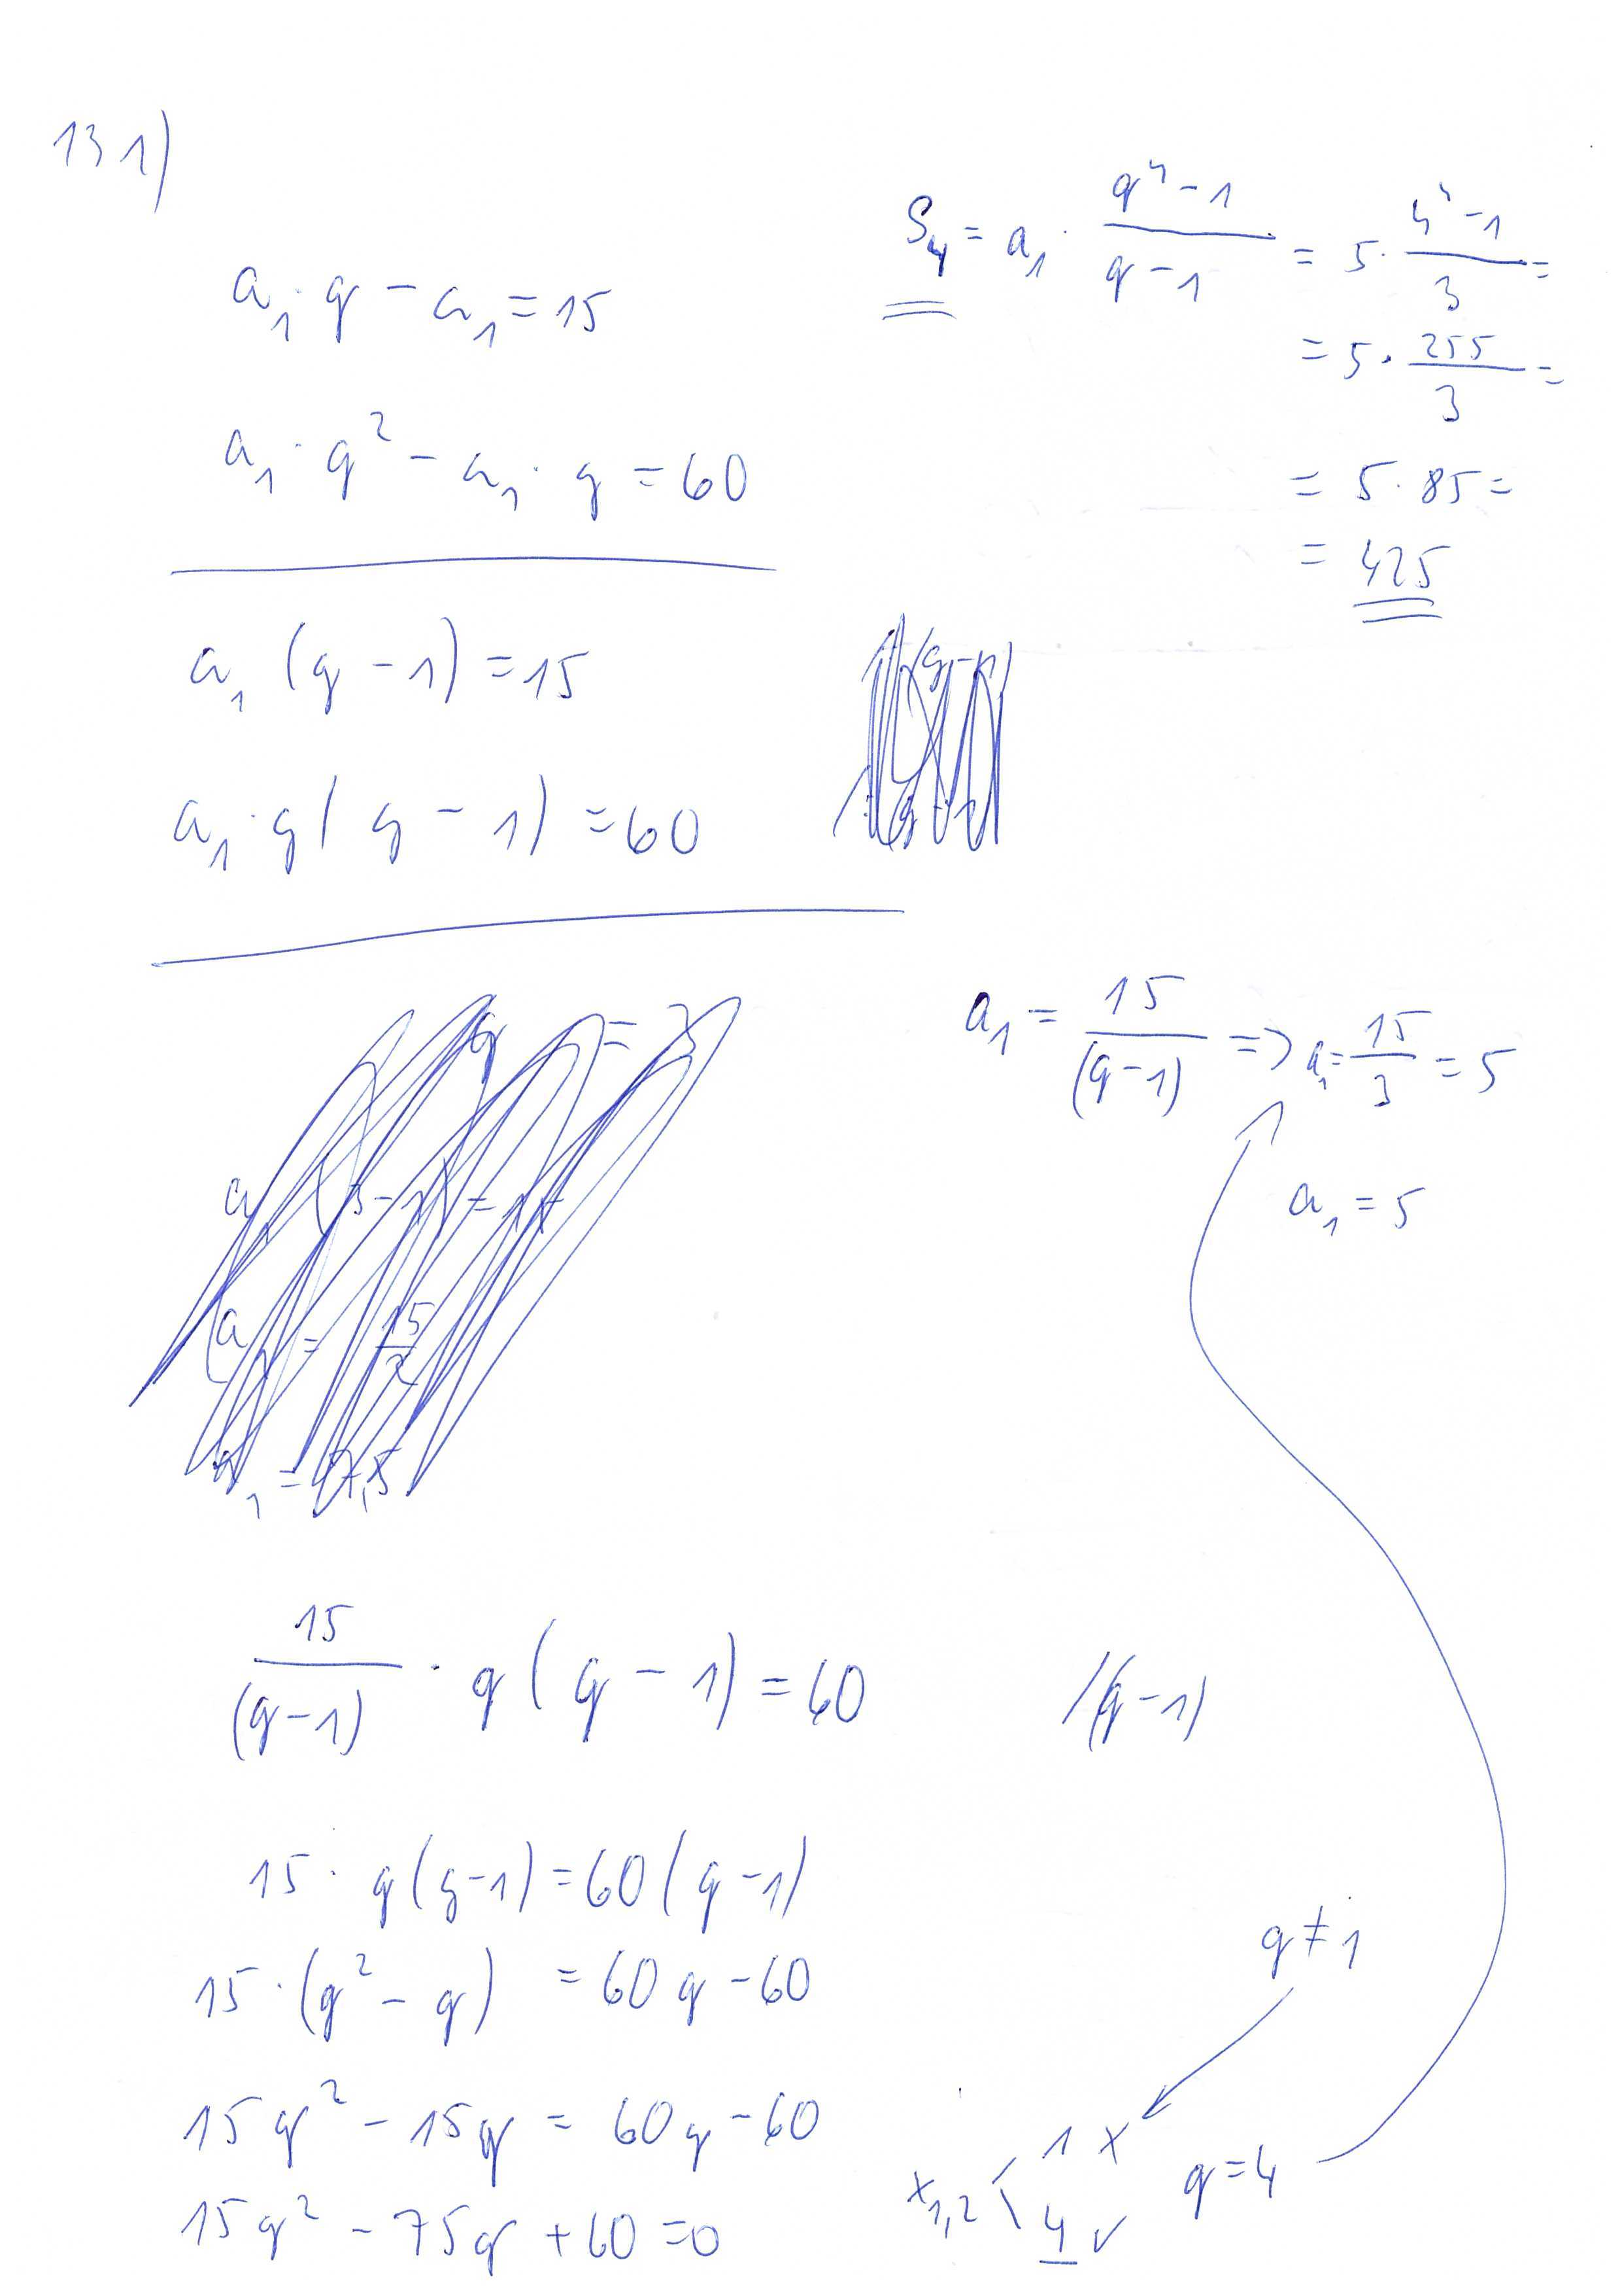 131)
a₁·q - a₁ = 15
a₁·q² - a₁·q = 60
a₁ (q - 1) = 15
a₁·q (q - 1) = 60
S₄ = a₁ · (q⁴ - 1)/(q - 1) = 5 · (4⁴ - 1)/3 =
= 5 · 255/3 =
= 5 · 85 =
= 425
a₁ = 15/(q-1) => a₁ = 15/3 = 5
a₁ = 5
15/(q-1) · q (q - 1) = 60 /(q-1)
15 · q(q-1) = 60(q-1)
15 · (q² - q) = 60q - 60
15q² - 15q = 60q - 60
15q² - 75q + 60 = 0
q ≠ 1
x₁,₂ < 1 x
4 ✓
q = 4